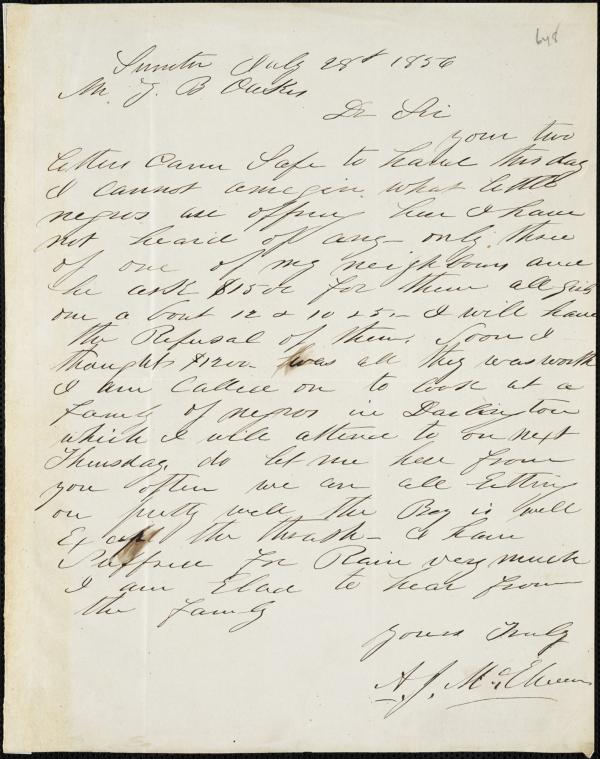 648
Sumter July 28th 1856
Mr Z. B. Oakes
Dr Sir
your two
letters came Safe to hand this day
I cannot amegin what little
negros are offring her I have
not heard of any - only three
of one of my neighbours and
he ask $1500 for them all girls
one a bout 12 & 10 & 5 - I will have
the Refusal of them. Soon I
thought $1200 - was all they was worth
I am Called on to look at a
family of negros in Darlington
which I will attend to on next
Thursday, do let me hear from
you often we are all Getting
on pretty well the Boy is well
Except the thrush - I have
Suffred for Rain very much
I am Glad to hear from
the family
yours Truly
A. J. McElveen